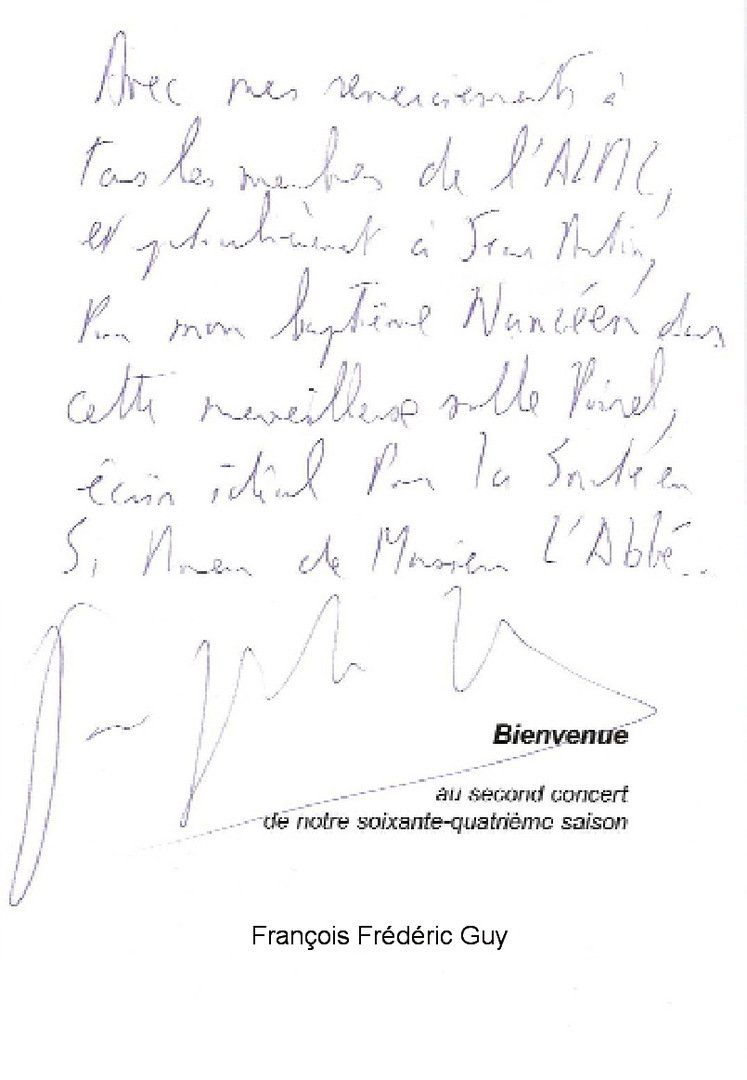 Avec mes remerciements à
tous les membres de l'ALMC,
et particulièrement à Jean
Pour mon baptême Nancéen dans
cette merveilleuse salle Poirel,
écrin idéal Pour la Sonate en
Si Mineur de Monsieur L'Abbé...
Bienvenue
au second concert
de notre soixante-quatrième saison
François Frédéric Guy